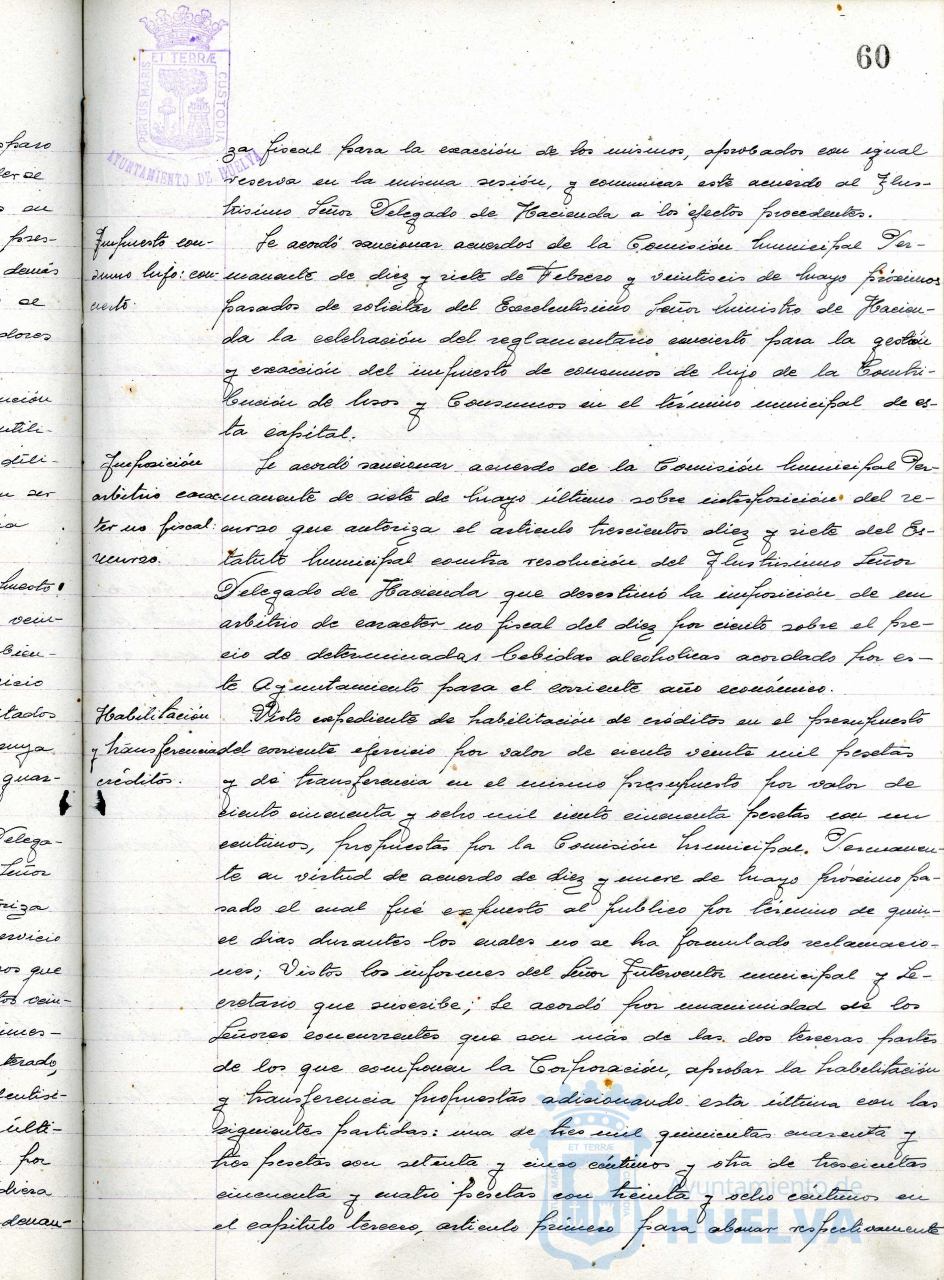 60
PORTUS MARIS
ET TERRÆ
CUSTODIA
AYUNTAMIENTO DE HUELVA
za fiscal para la exacción de los mismos, aprobados con igual
reserva en la misma sesión, y comunicar este acuerdo al Ilus-
trisimo Señor Delegado de Hacienda a los efectos procedentes.
Impuesto con-
sumo lujo: con-
cierto.
Se acordó sancionar acuerdos de la Comisión Municipal Per-
manente de diez y siete de Febrero y veintiseis de Mayo próximos
pasados de solicitar del Excelentisimo Señor Ministro de Hacien-
da la celebración del reglamentario concierto para la gestión
y exacción del impuesto de consumos de lujo de la Contri-
bución de Usos y Consumos en el término municipal de es-
ta capital.
Imposición
arbitrio carac-
ter no fiscal:
recurso.
Se acordó sancionar acuerdo de la Comisión Municipal Per-
manente de siete de Mayo último sobre interposición del re-
curso que autoriza el articulo trescientos diez y siete del Es-
tatuto Municipal contra resolución del Ilustrisimo Señor
Delegado de Hacienda que desestimó la imposición de un
arbitrio de caracter no fiscal del diez por ciento sobre el pre-
cio de determinadas bebidas alcoholicas acordado por es-
te Ayuntamiento para el corriente año económico.
Habilitación
y transferencia
créditos.
Visto expediente de habilitación de créditos en el presupuesto
del corriente ejercicio por valor de ciento veinte mil pesetas
y de transferencia en el mismo presupuesto por valor de
ciento cincuenta y ocho mil ciento cincuenta pesetas con un
centimos, propuestas por la Comisión Municipal Permanen-
te en virtud de acuerdo de diez y nueve de Mayo próximo pa-
sado el cual fué expuesto al publico por término de quin-
ce dias durantes los cuales no se ha formulado reclamacio-
nes; Vistos los informes del Señor Interventor municipal y Se-
cretario que suscribe; Se acordó por unanimidad de los
Señores concurrentes que son más de las dos terceras partes
de los que componen la Corporación, aprobar la habilitación
y transferencia propuestas adicionando esta última con las
siguientes partidas: una de tres mil quinientas cuarenta y
tres pesetas con setenta y cinco céntimos y otra de trescientas
cincuenta y cuatro pesetas con treinta y ocho centimos en
el capitulo tercero, articulo primero para abonar respectivamente
Ayuntamiento de
HUELVA